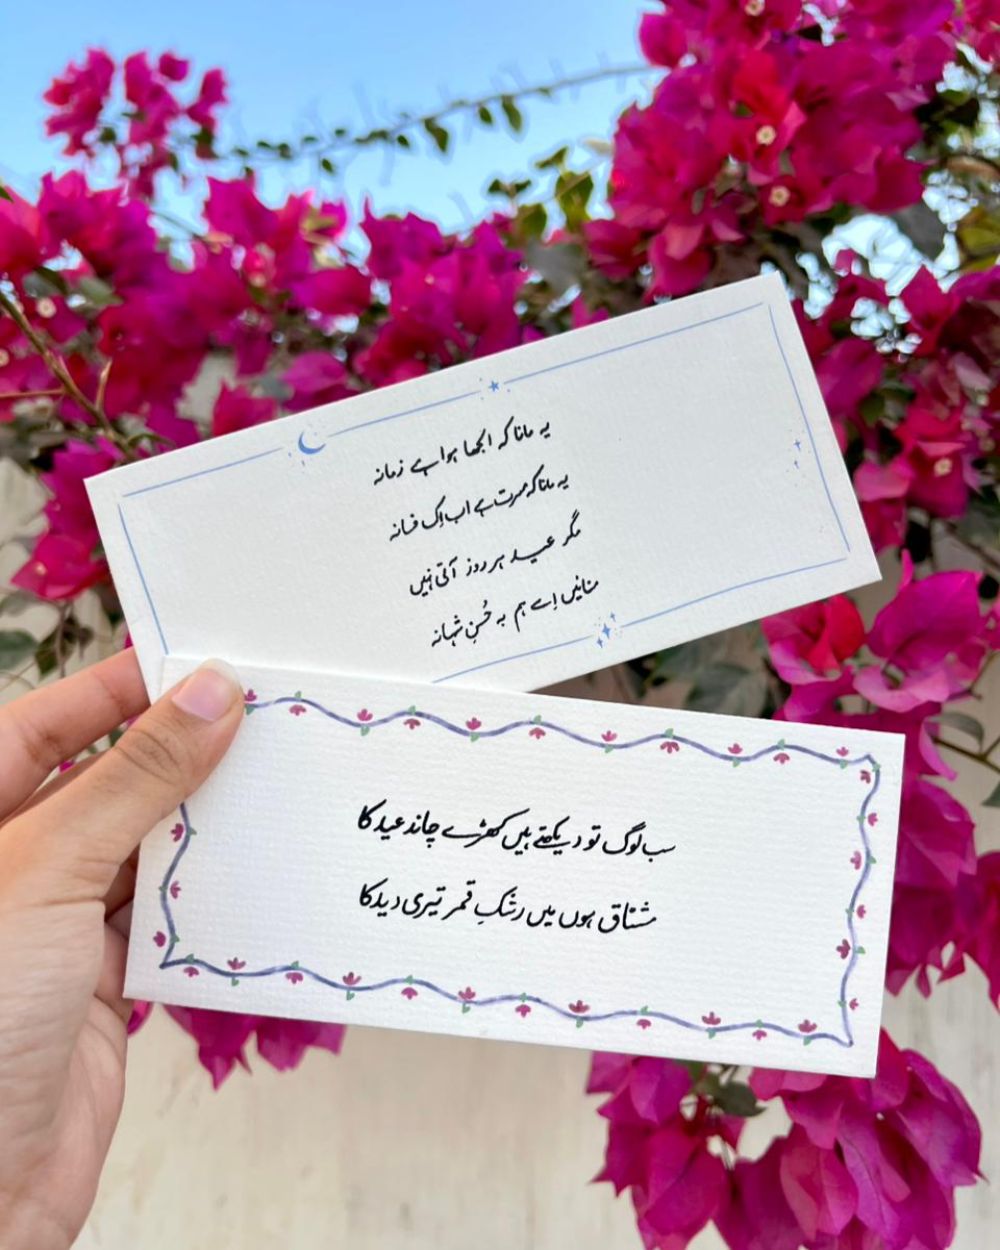 یہ مانا کہ الجھا ہوا ہے زمانہ
یہ مانا کہ مسرت ہے اب اِک فسانہ
مگر عید ہر روز آتی نہیں
منائیں اِسے ہم بہ حُسنِ شہانہ
سب لوگ تو دیکھتے ہیں کھڑے چاند عید کا
مشتاق ہوں میں رشکِ قمر تیری دید کا